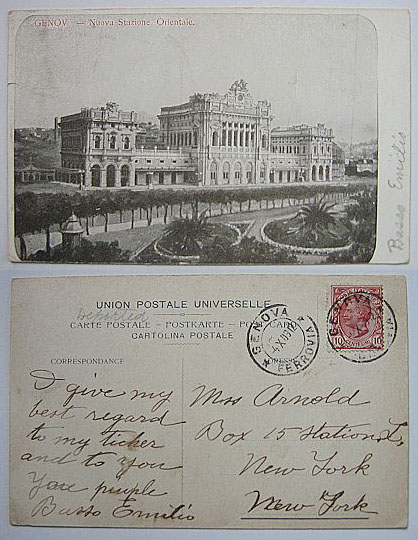 GENOVA. — Nuova Stazione Orientale.
Basso Emilio
UNION POSTALE UNIVERSELLE
Deported
CARTE POSTALE - POSTKARTE - POST CARD
CARTOLINA POSTALE
CORRESPONDANCE
GENOVA
FERROVIA
GENOVA
10
10
I give my
best regard
to my ticher
and to you
Your puiple
Busso Emilio
Miss Arnold
Box 15 Station L,
New York
New York